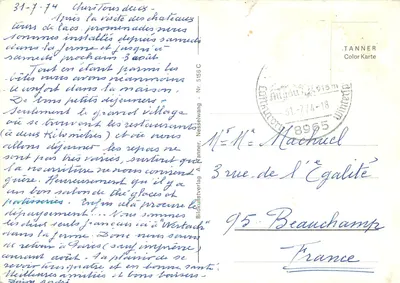 31-7-74 Chers Tous deux -
Après la visite des chateaux
tours de lacs, promenades nous
sommes installés depuis samedi
dans la ferme et jusqu'à
samedi prochain 3 août.
Tout en étant parmi les
bêtes nous avons néanmoins
le confort dans la maison.
De bons petits déjeuners -
Seulement le grand village
où se trouvent les restaurants
(à deux kilomètres) et où nous
allons déjeuner les repas ne
sont pas très variés, surtout que
la nourriture ne nous convient
guère. Heureusement qu'il y a
un bon salon de thé glaces et
patisseries. Enfin cela procure le
dépaysement!... Nous sommes
les deux seuls français à
dans la ferme. Donc nous serons
de retour à Paris (sauf imprévu)
courant août. Le plaisir de se
revoir tous quatre et en bonne santé.
Meilleures amitiés et bons baisers -
TANNER
Color Karte
31.-7.74-18
8965
Mr. Me. Machuel
3 rue de l'Egalité
95. Beauchamp
France